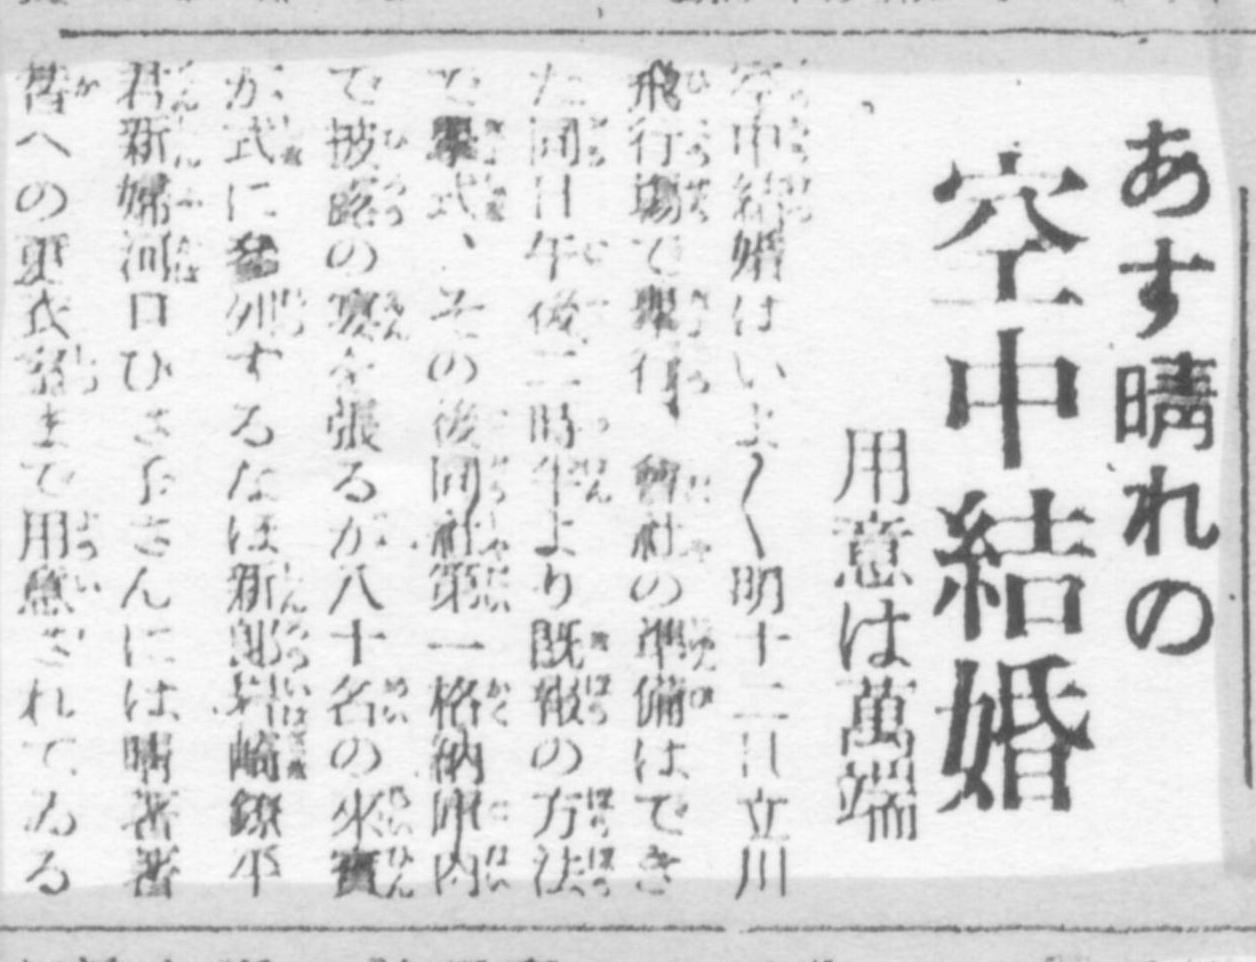 あす晴れの
空中結婚
用意は萬端
空中結婚はいよ〱明十二日立川
飛行場で擧行、會社の準備はでき
た同日午後二時半より既報の方法
で擧式、その後同社第一格納庫内
で披露の宴を張るが八十名の來賓
が式に參列するなほ新郎岩崎鐐平
君新婦河口ひさ子さんには晴着着
替への更衣室まで用意されてゐる